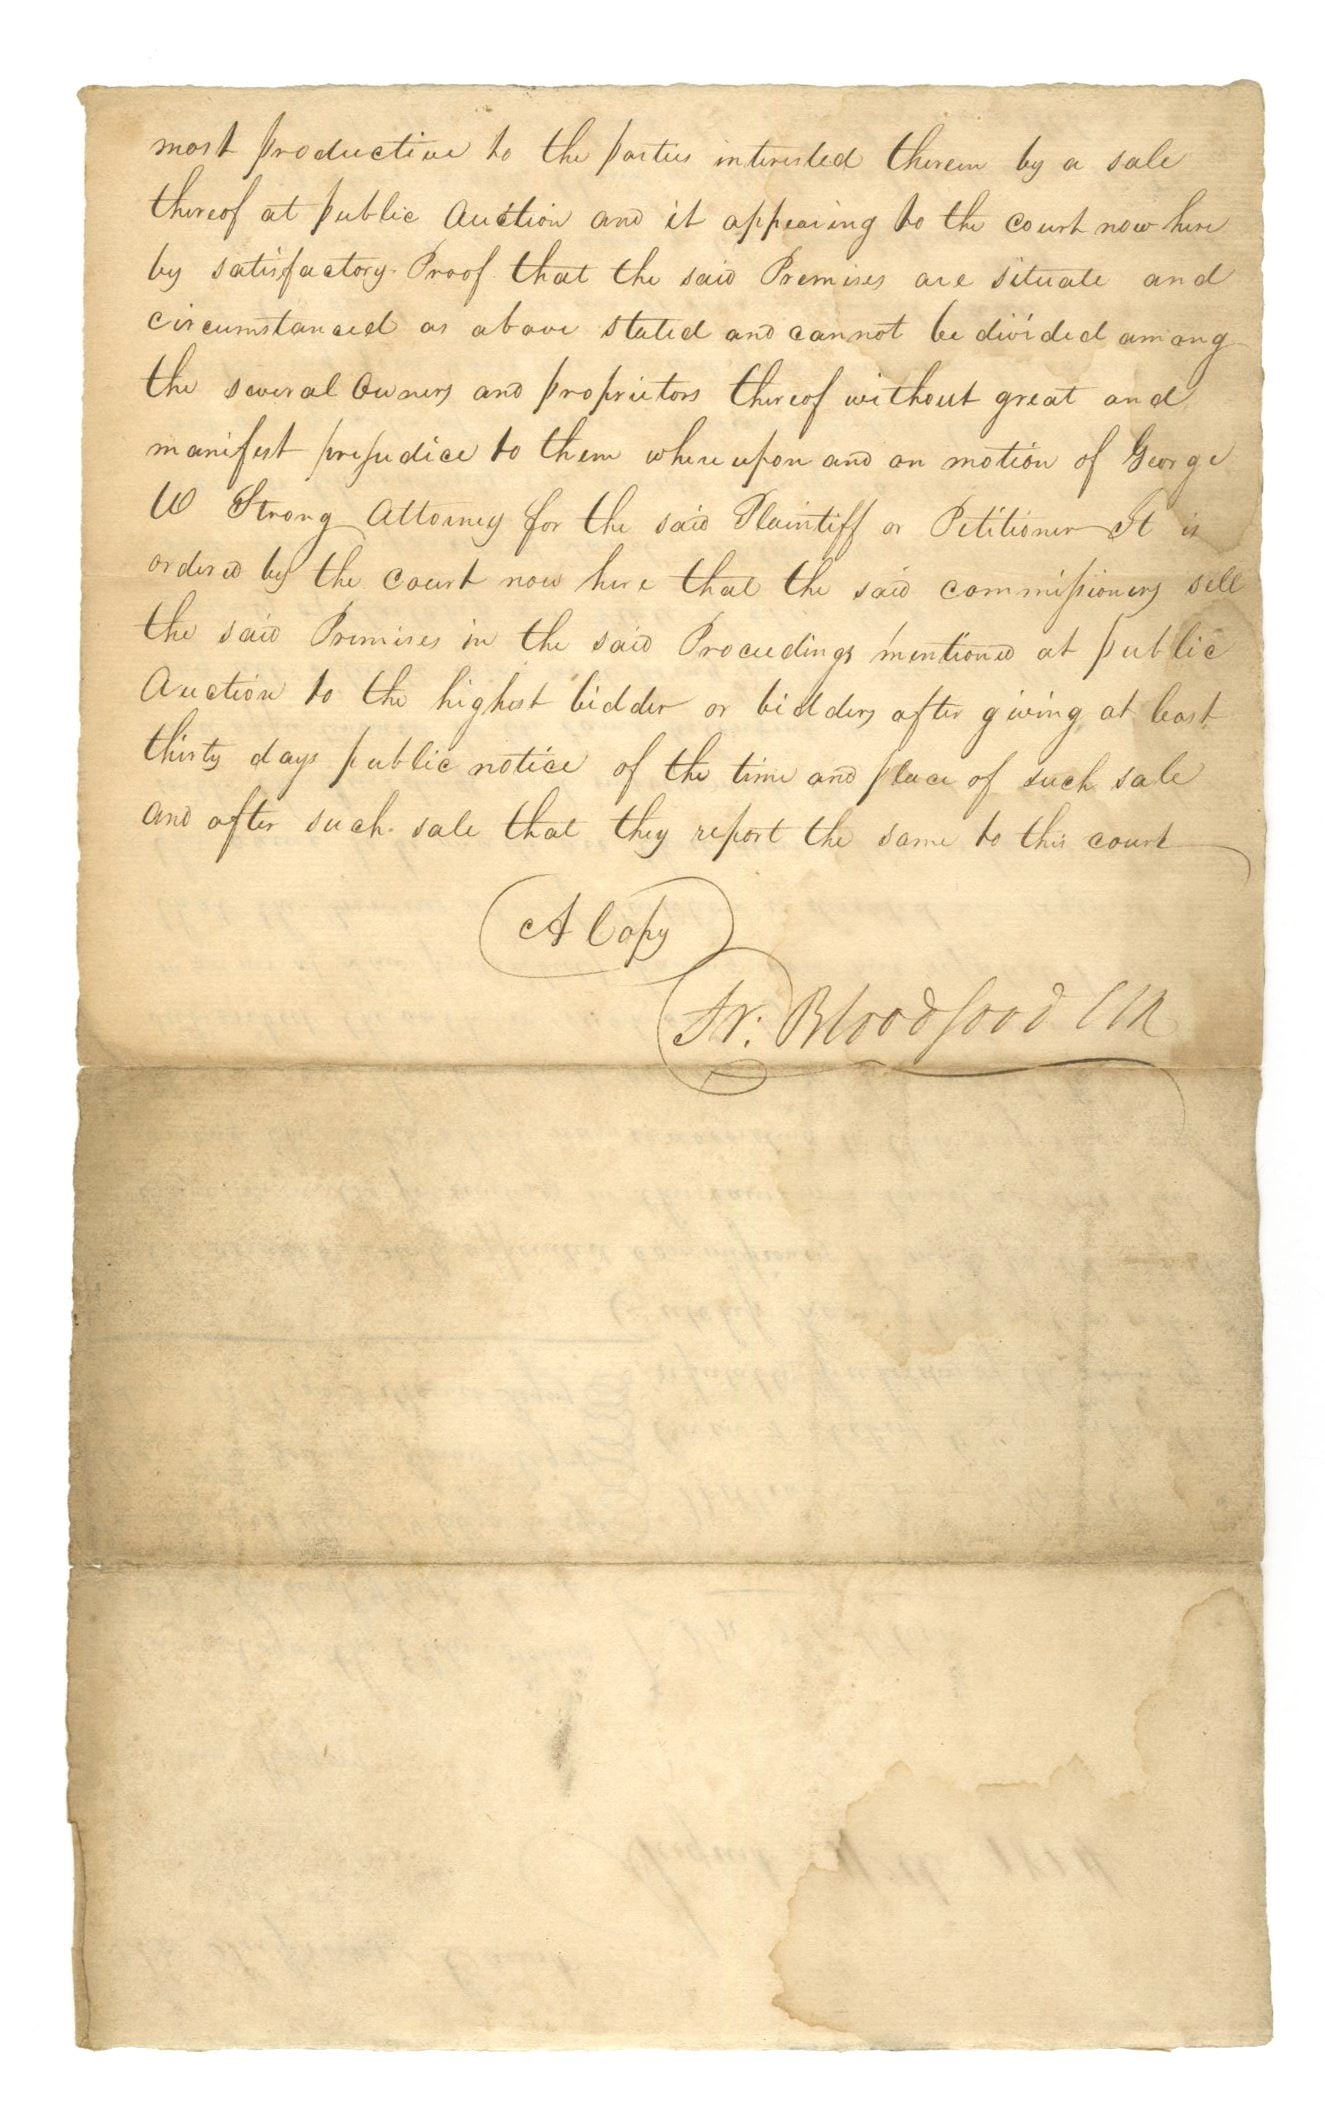 most productive to the parties interested therein by a sale
thereof at public Auction and it appearing to the court now here
by satisfactory Proof that the said Premises are situate and
circumstanced as above stated and cannot be divided among
the several Owners and proprietors thereof without great and
manifest prejudice to them where upon and on motion of George
W Strong Attorney for the said Plaintiff or Petitioner It is
ordered by the court now here that the said commissioners sell
the said Premises in the said Proceedings mentioned at public
Auction to the highest bidder or bidders after giving at least
thirty days public notice of the time and place of such sale
and after such sale that they report the same to this court
A Copy
Fr. Bloodgood Clk